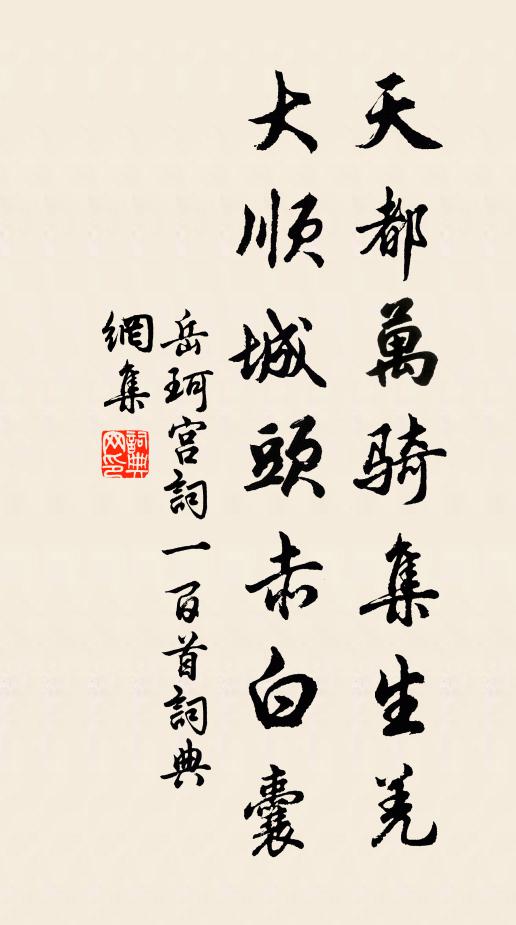 天都萬騎集生羌
大順城頭赤白囊
岳珂宮詞一百首詞典
網集
詞典
网印